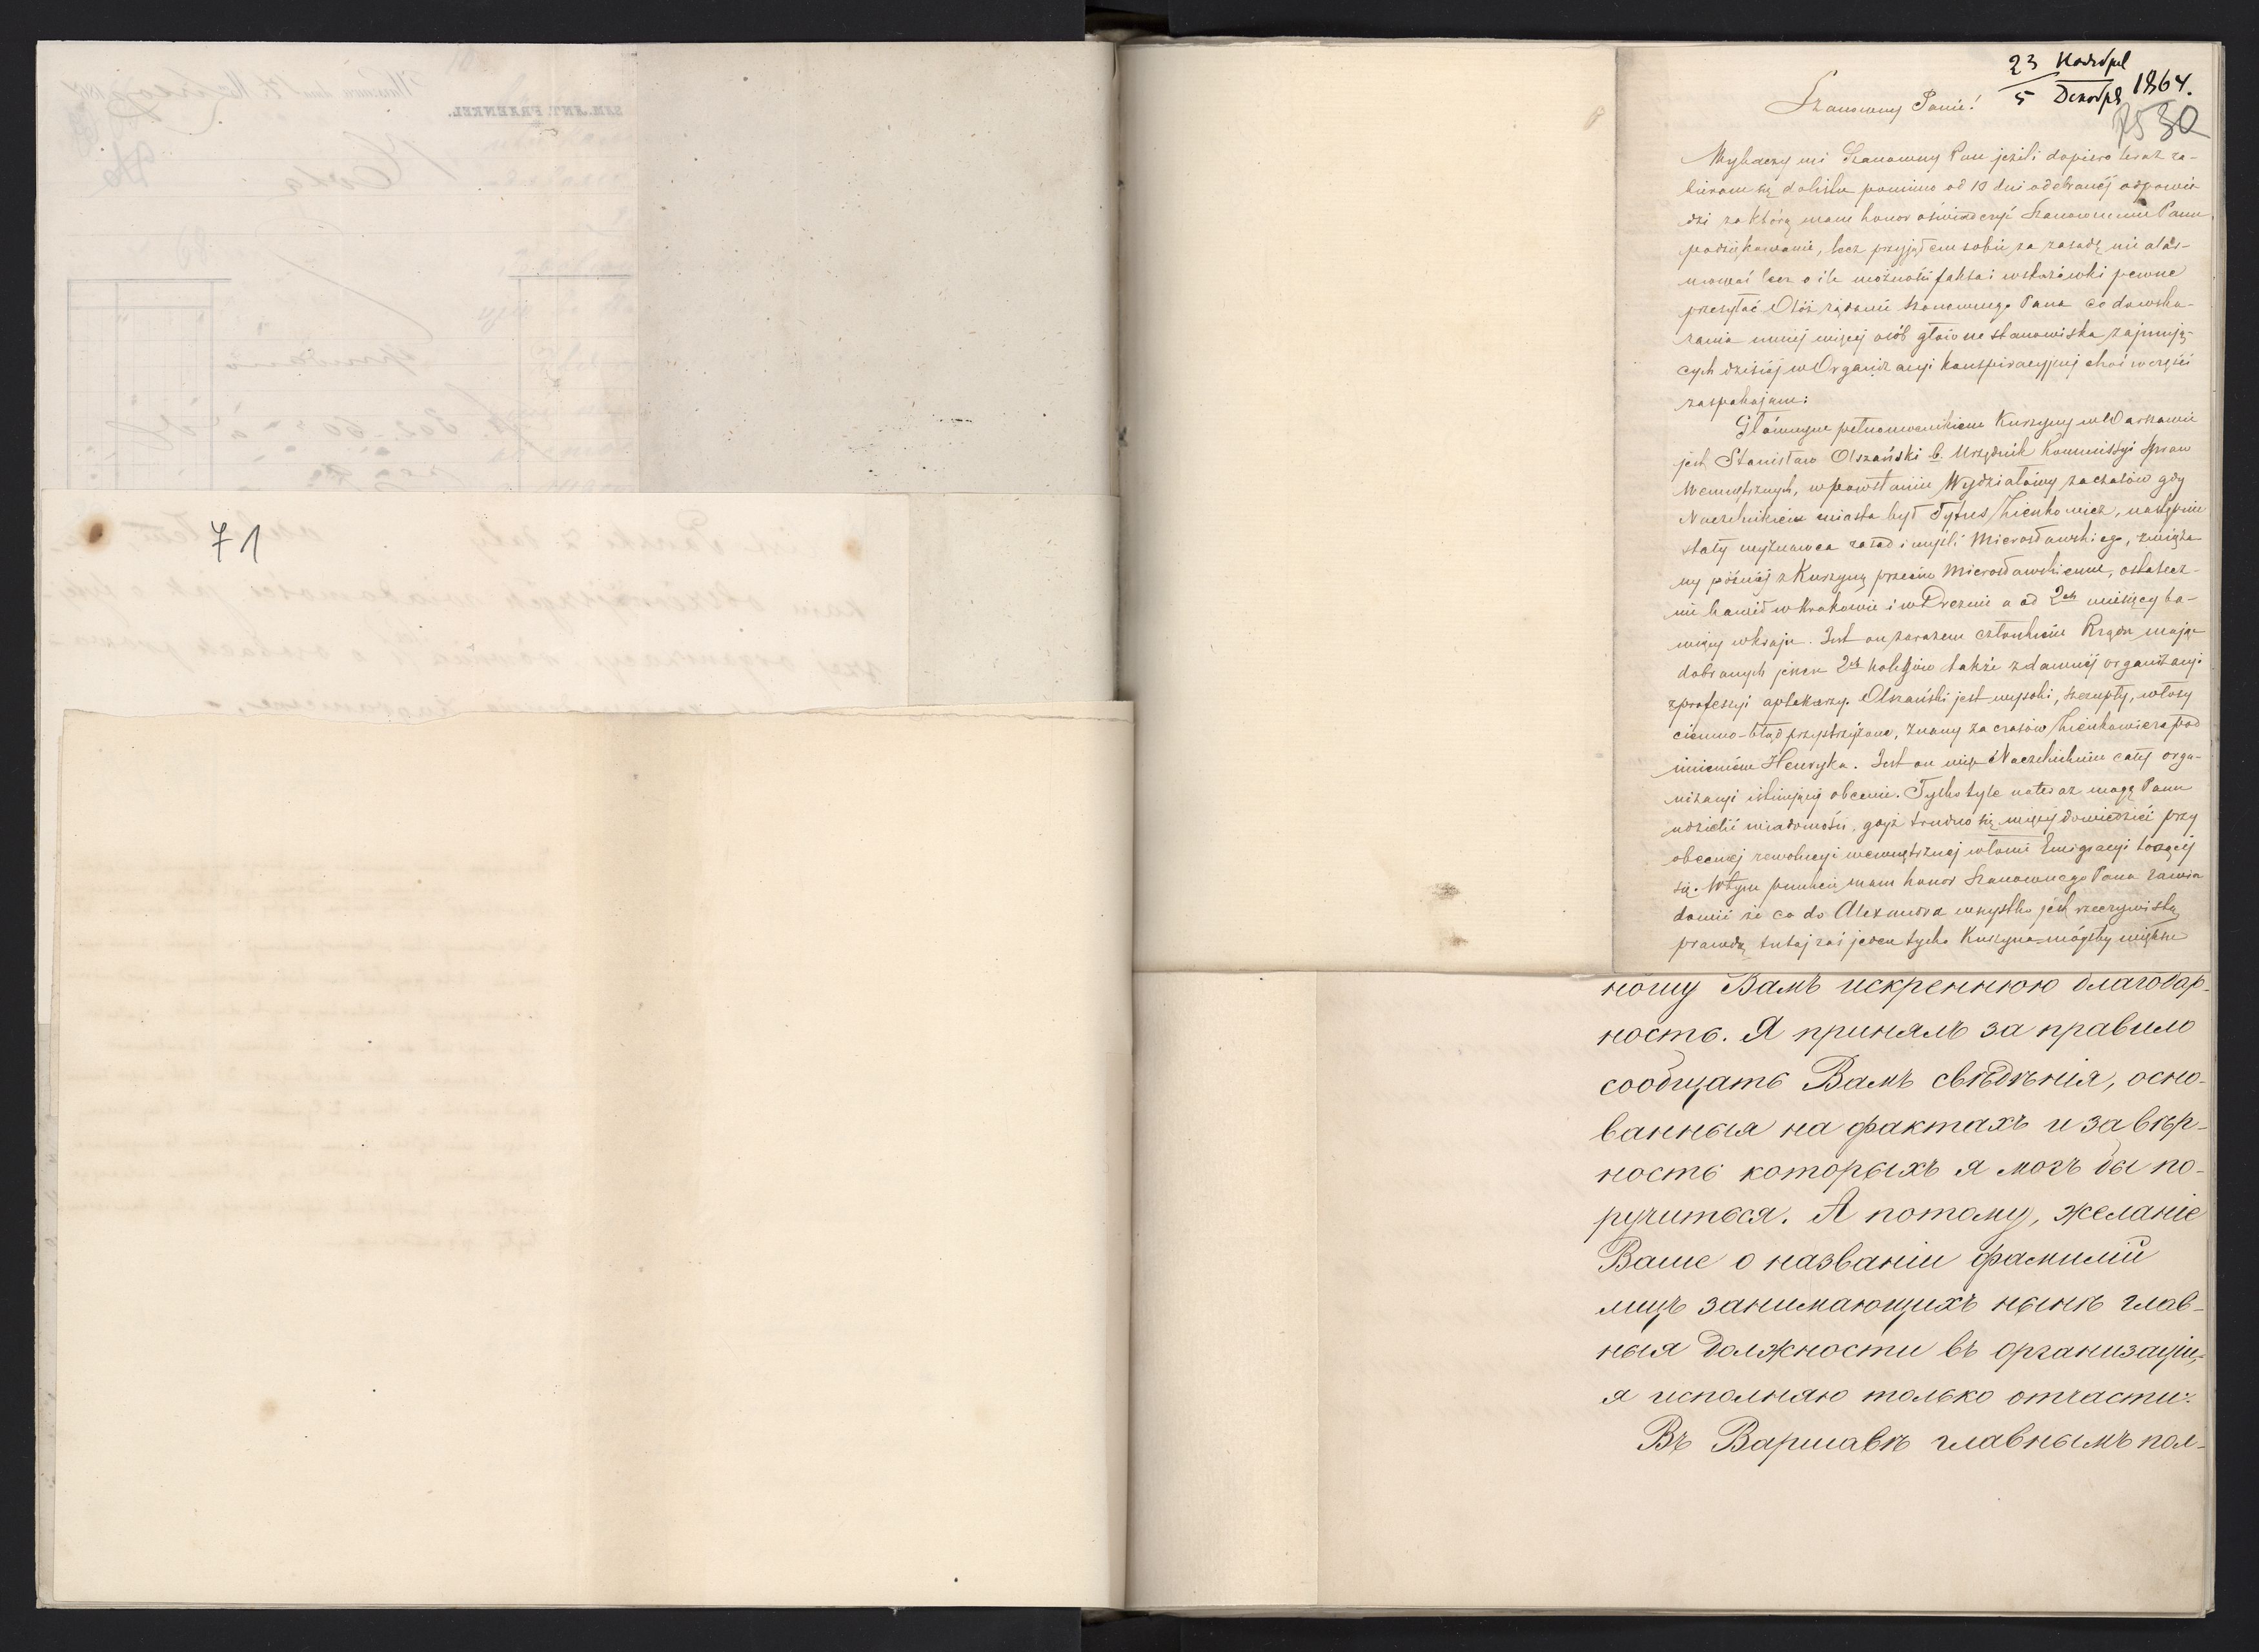 71
23 Ноября
5 Декабря 1864.
30
Szanowny Panie!
Wybaczy mi Szanowny Pan jeżeli dopiero teraz za-
bieram się do listu pomimo od 10 dni odebranéj odpowie
dzi za którą mam honor oświadczyć Szanownemu Panu
podziękowanie, lecz przyjąłem sobie za zasadę nie alar-
mować lecz o ile możności fakta i wskazówki pewne
przesyłać Otóż żądanie Szanownego Pana co do wska-
zania mniej więcej osób główne stanowiska zajmują-
cych dzisiéj w Organizacyi konspiracyjnej choć w części
zaspakajam:
Głównym pełnomocnikiem Kurzyny w Warszawie
jest Stanisław Olszański b. Urzędnik Kommissyi Spraw
Wewnętrznych, w powstaniu Wydziałowy za czasów gdy
Naczelnikiem miasta był Tytus Zienkowicz, następnie
stały wyznawca zasad i myśli Mierosławskiego, związa
ny późniéj z Kurzyną przeciw Mierosławskiemu, ostatecz-
nie bawił w Krakowie i w Dreznie a od 2ch miesięcy ba-
wiący w kraju. Jest on zarazem członkiem Rządu mając
dobranych jeszcze 2ch kolegów także z dawnéj organizacyi
z professyi aptekarzy. Olszański jest wysoki, szczupły, włosy
ciemno-bląd przystrzyżone, znany za czasów Zienkowicza pod
imieniem Henryka. Jest on więc Naczelnikiem całej orga-
nizacyi istniejącéj obecnie. Tylko tyle na teraz mogę Panu
udzielić wiadomości, gdyż trudno się więcéj dowiedzieć przy
obecnéj rewolucyi wewnętrznej w łonie Emigracyi toczącéj
się. W tym punkcie mam honor Szanownego Pana zawia
domić że co do Alexandra wszystko jest rzeczywistą
prawdą tutaj zaś jeden tylko Kurzyna mógłby większe
ношу Вамъ искреннюю благодар-
ность. Я принялъ за правило
сообщать Вамъ свѣдѣнія, осно-
ванныя на фактахъ и за вѣр-
ность которыхъ я могъ бы по-
ручиться. А потому, желаніе
Ваше о названіи фамилій
лицъ занимающихъ нынѣ глав-
ныя должности въ организаціи,
я исполняю только отчасти:
Въ Варшавѣ главнымъ пол-